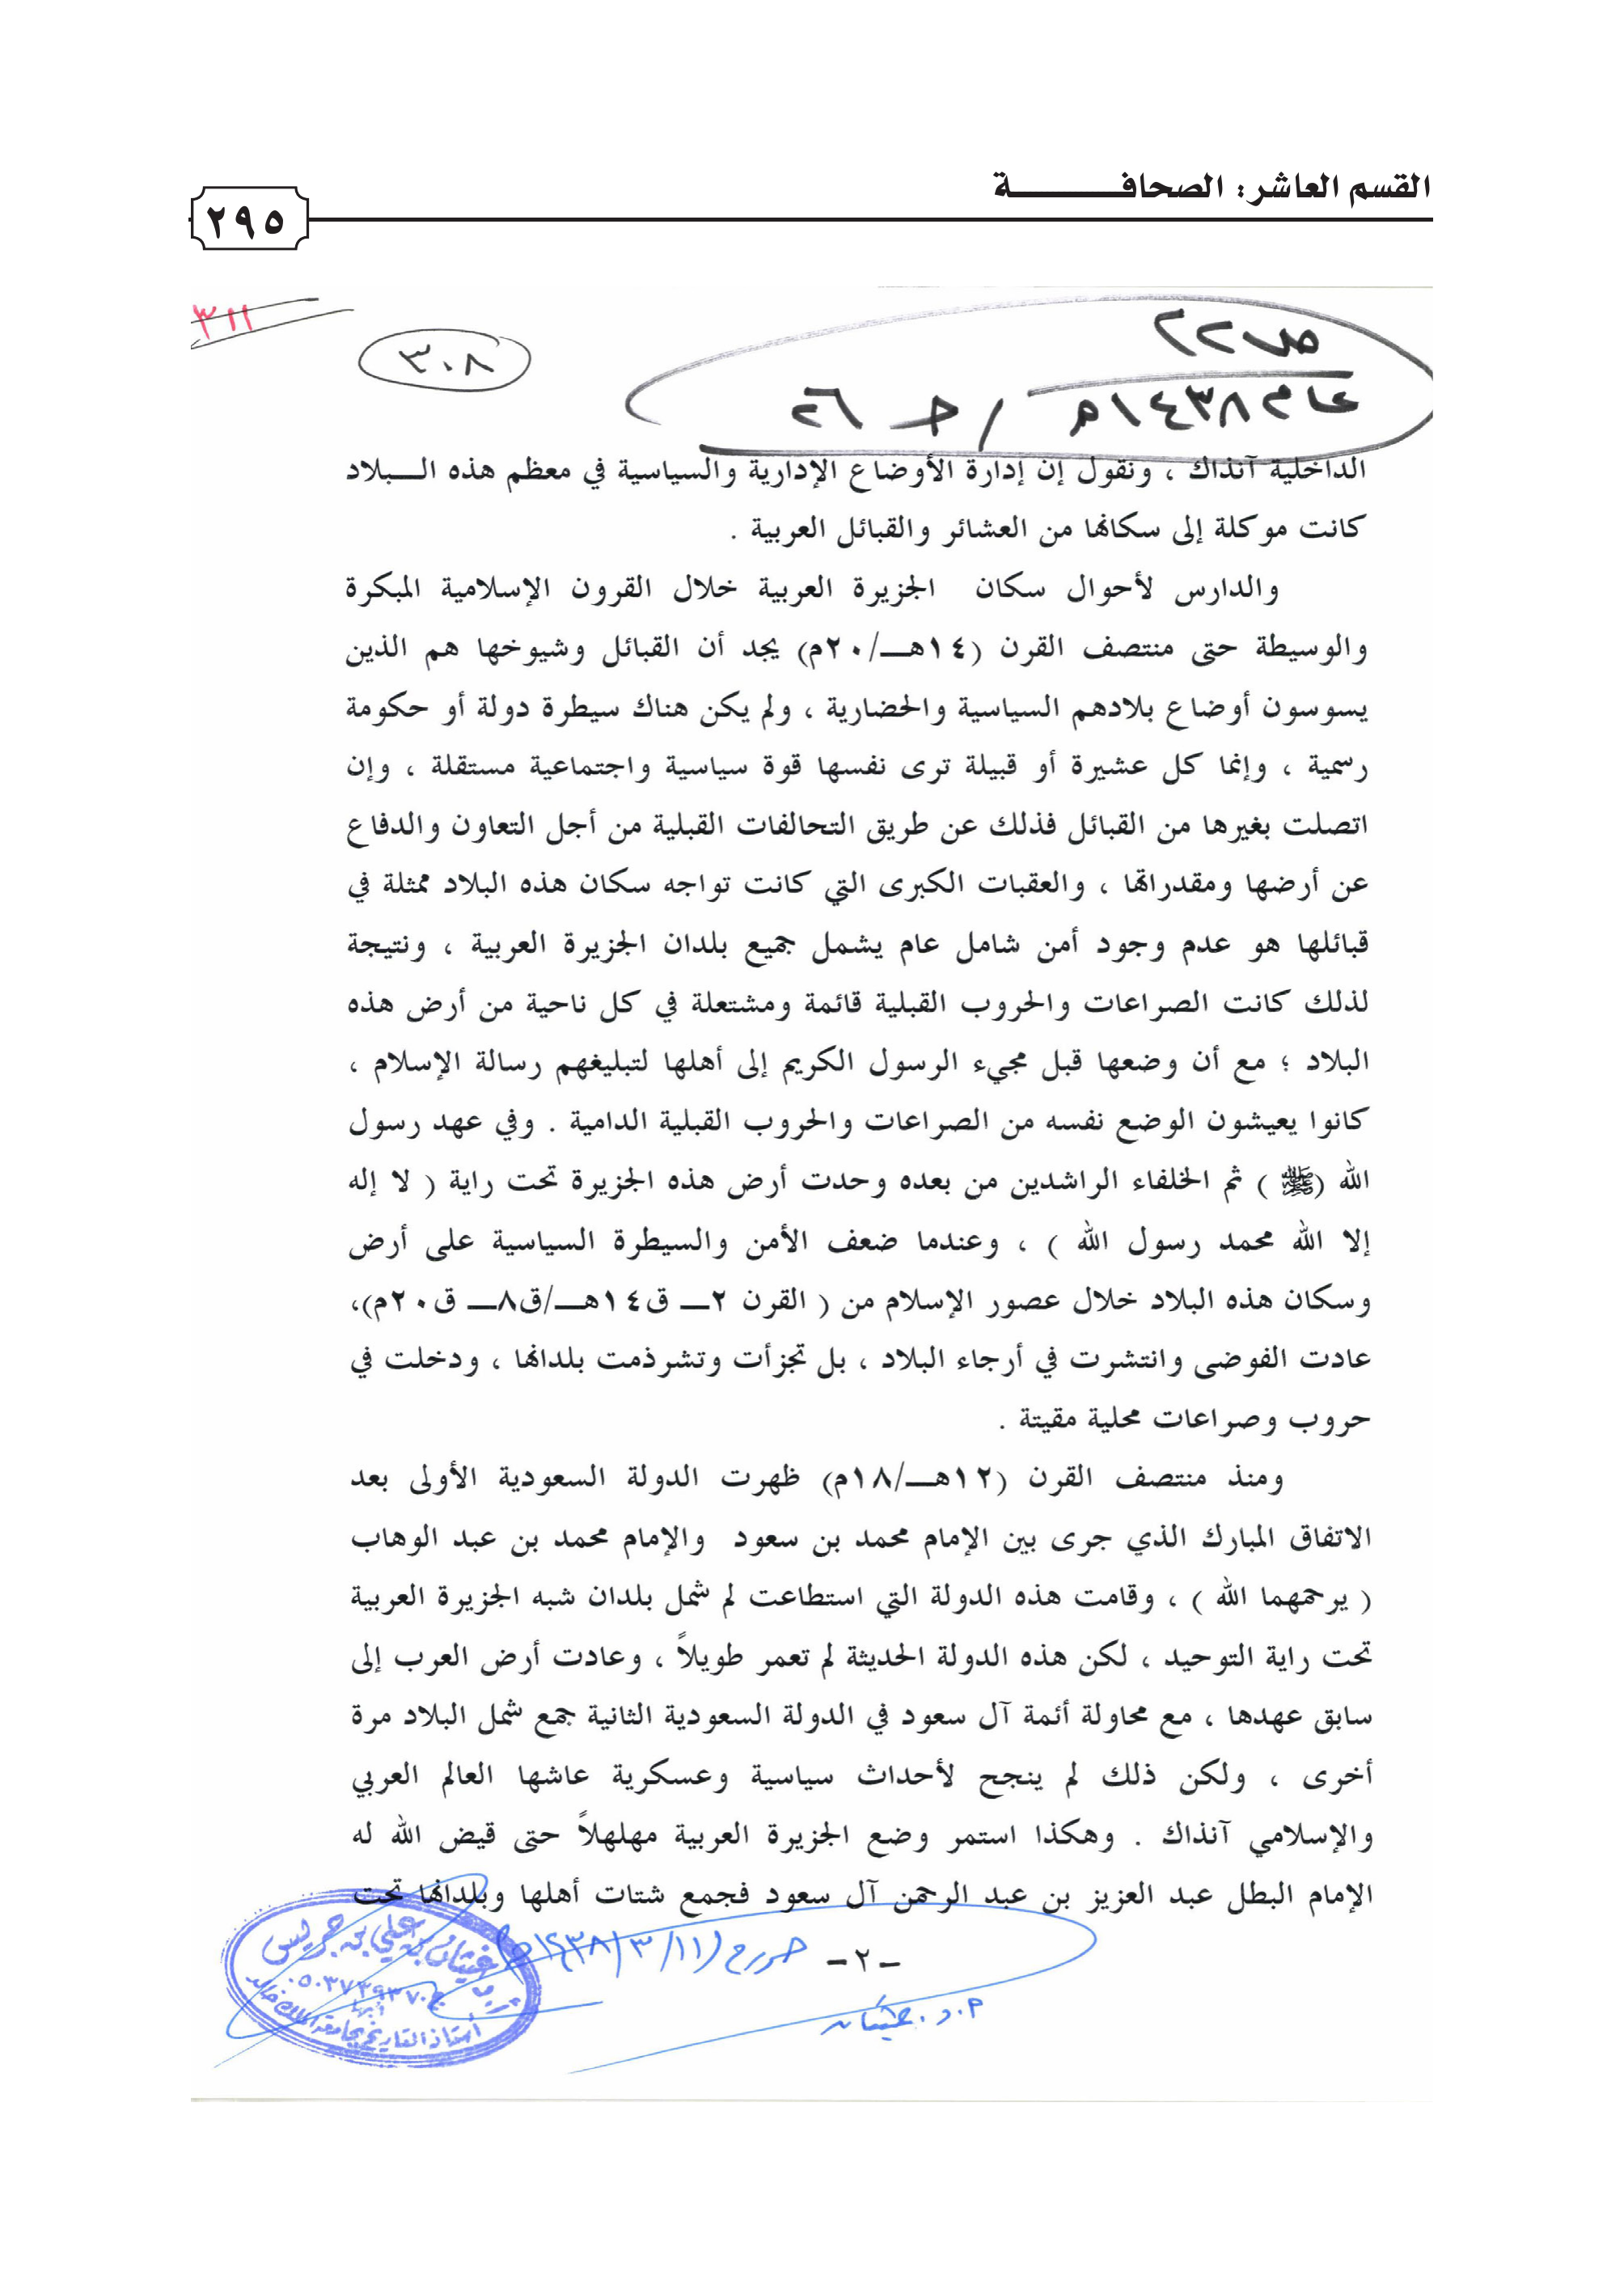 القسم العاشر: الصحافــــــــــة
٢٩٥
٣١١
٣٠٨
ص٢٢
عام ١٤٣٨هـ / جـ ٢٦
الداخلية آنذاك ، ونقول إن إدارة الأوضاع الإدارية والسياسية في معظم هذه الـــبلاد
كانت موكلة إلى سكانها من العشائر والقبائل العربية .
والدارس لأحوال سكان الجزيرة العربية خلال القرون الإسلامية المبكرة
والوسيطة حتى منتصف القرن (١٤هــ/٢٠م) يجد أن القبائل وشيوخها هم الذين
يسوسون أوضاع بلادهم السياسية والحضارية ، ولم يكن هناك سيطرة دولة أو حكومة
رسمية ، وإنما كل عشيرة أو قبيلة ترى نفسها قوة سياسية واجتماعية مستقلة ، وإن
اتصلت بغيرها من القبائل فذلك عن طريق التحالفات القبلية من أجل التعاون والدفاع
عن أرضها ومقدراتها ، والعقبات الكبرى التي كانت تواجه سكان هذه البلاد ممثلة في
قبائلها هو عدم وجود أمن شامل عام يشمل جميع بلدان الجزيرة العربية ، ونتيجة
لذلك كانت الصراعات والحروب القبلية قائمة ومشتعلة في كل ناحية من أرض هذه
البلاد ؛ مع أن وضعها قبل مجيء الرسول الكريم إلى أهلها لتبليغهم رسالة الإسلام ،
كانوا يعيشون الوضع نفسه من الصراعات والحروب القبلية الدامية . وفي عهد رسول
الله (ﷺ ) ثم الخلفاء الراشدين من بعده وحدت أرض هذه الجزيرة تحت راية ( لا إله
إلا الله محمد رسول الله ) ، وعندما ضعف الأمن والسيطرة السياسية على أرض
وسكان هذه البلاد خلال عصور الإسلام من ( القرن ٢ــ ق١٤هــ/ق٨ــ ق٢٠م)،
عادت الفوضى وانتشرت في أرجاء البلاد ، بل تجزأت وتشرذمت بلدانها ، ودخلت في
حروب وصراعات محلية مقيتة .
ومنذ منتصف القرن (١٢هــ/١٨م) ظهرت الدولة السعودية الأولى بعد
الاتفاق المبارك الذي جرى بين الإمام محمد بن سعود والإمام محمد بن عبد الوهاب
( يرحمهما الله ) ، وقامت هذه الدولة التي استطاعت لم شمل بلدان شبه الجزيرة العربية
تحت راية التوحيد ، لكن هذه الدولة الحديثة لم تعمر طويلاً ، وعادت أرض العرب إلى
سابق عهدها ، مع محاولة أئمة آل سعود في الدولة السعودية الثانية جمع شمل البلاد مرة
أخرى ، ولكن ذلك لم ينجح لأحداث سياسية وعسكرية عاشها العالم العربي
والإسلامي آنذاك . وهكذا استمر وضع الجزيرة العربية مهلهلاً حتى قيض الله له
الإمام البطل عبد العزيز بن عبد الرحمن آل سعود فجمع شتات أهلها وبلدانها تحت
-٢-
غيثان بن علي بن جريس
٠٥٠٣٧٣٩٣٧٠
أبها
أستاذ التاريخ بجامعة الملك خالد